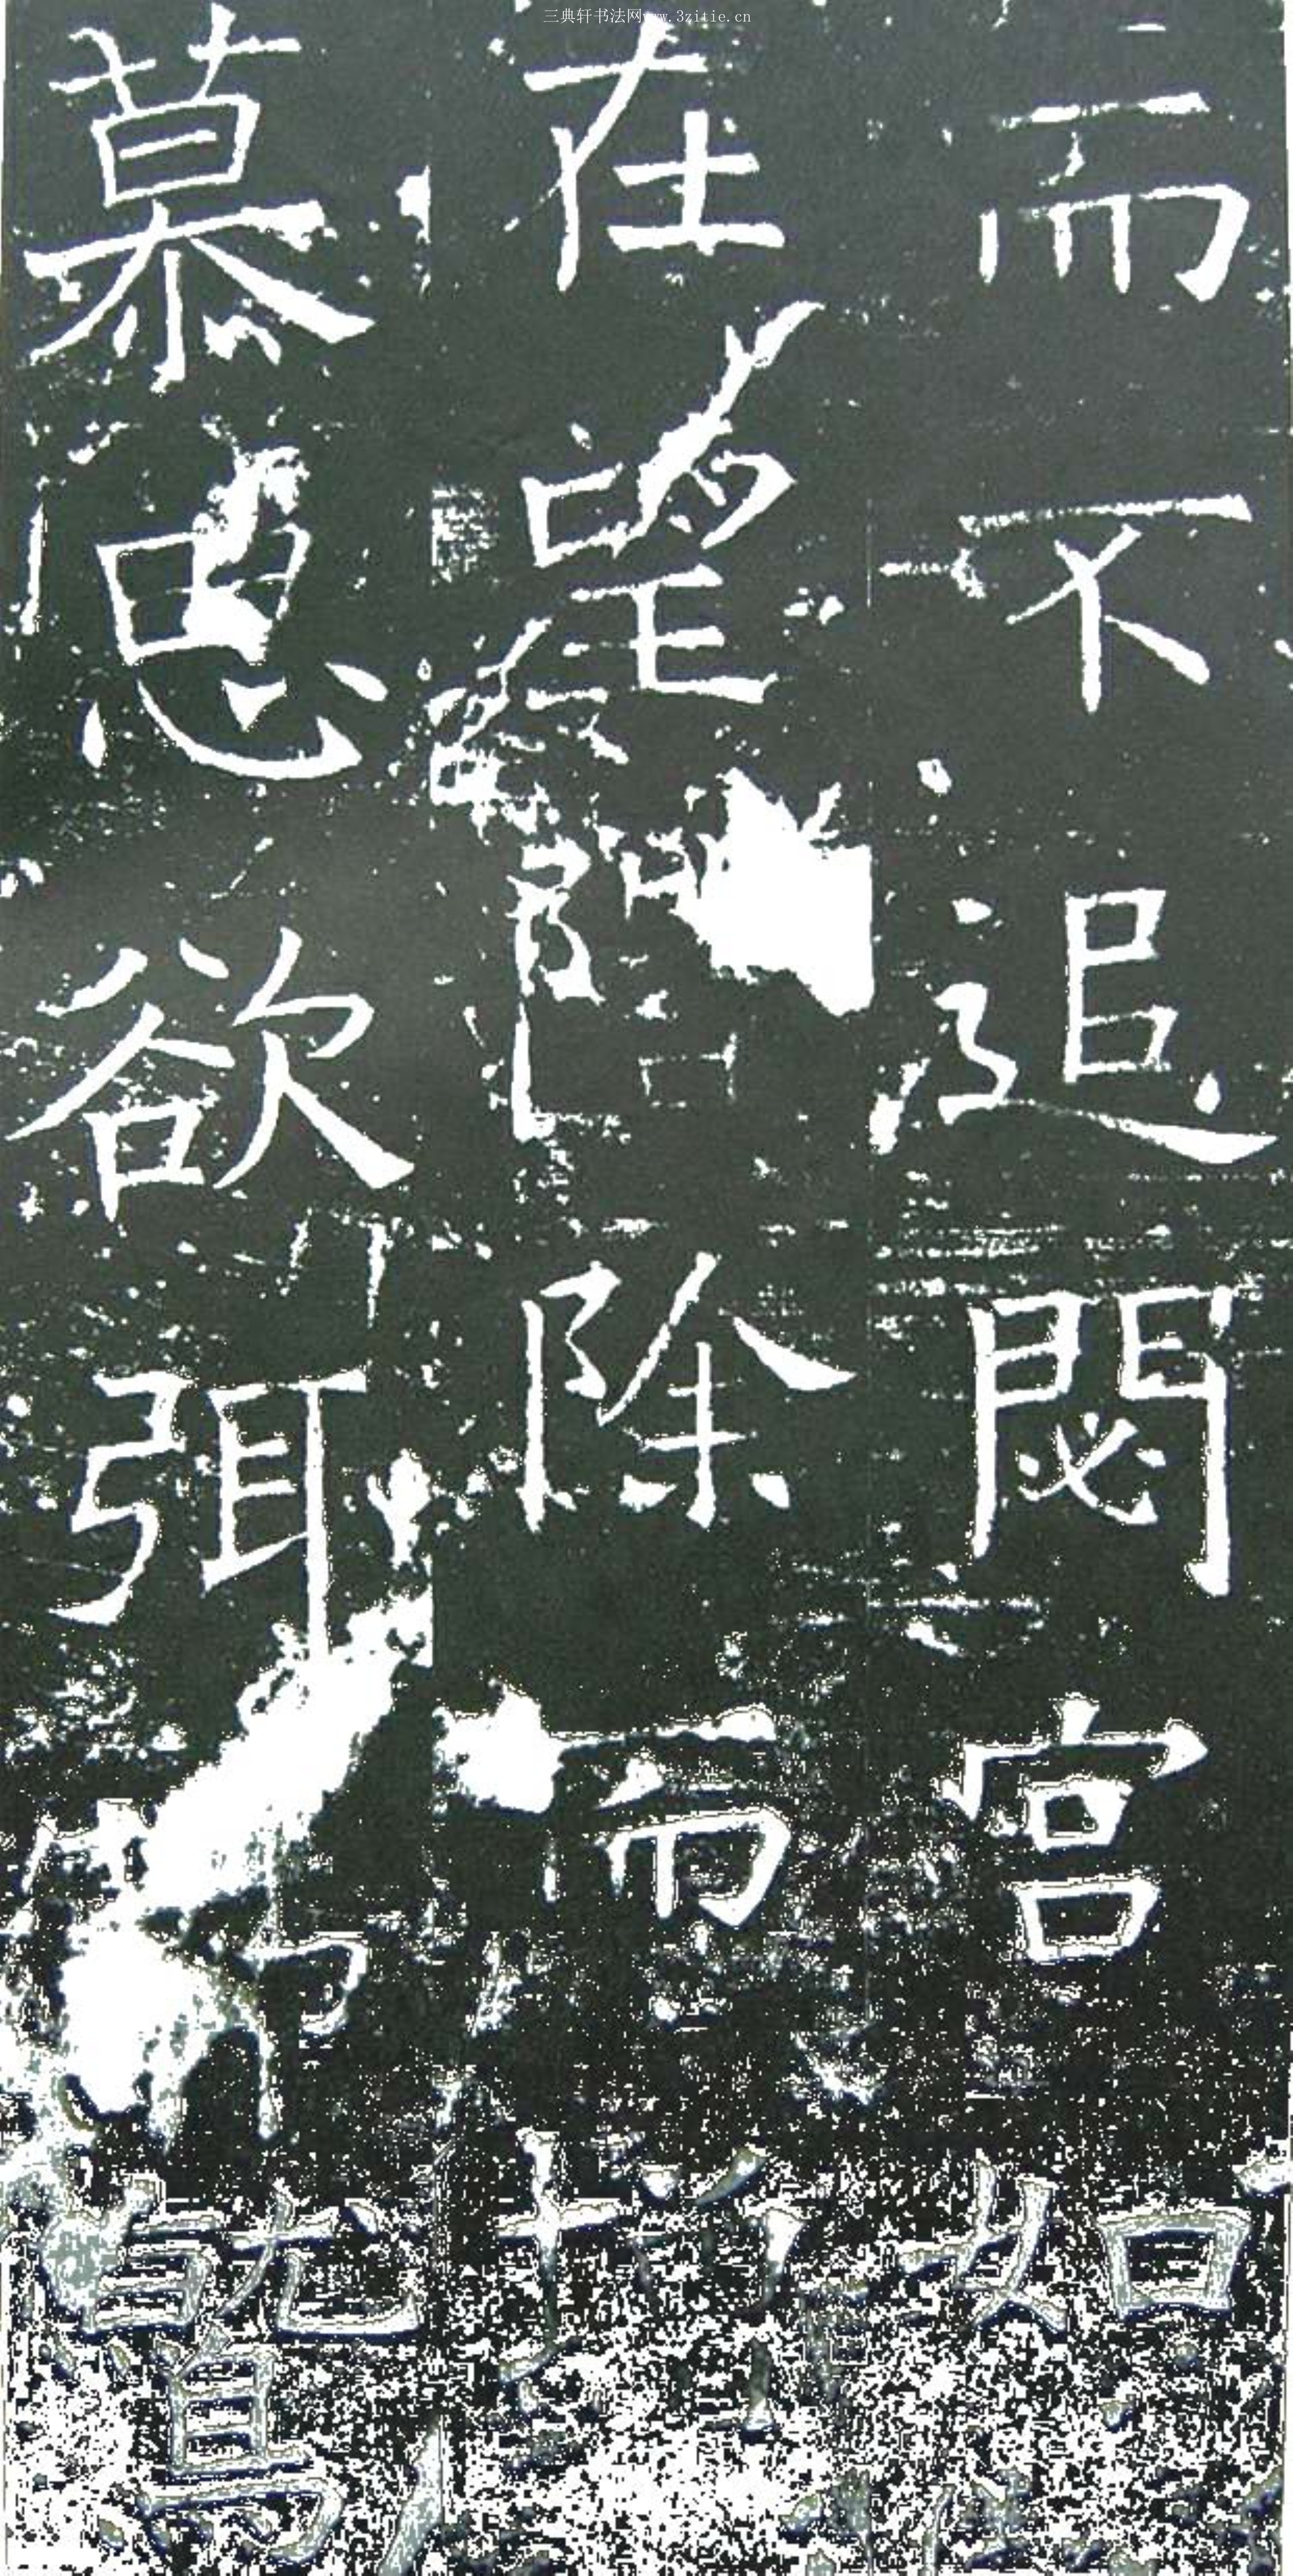 三典轩书法网www.3zitie.cn
而不追閟宮如
在望階除而增
慕思欲弭節就養